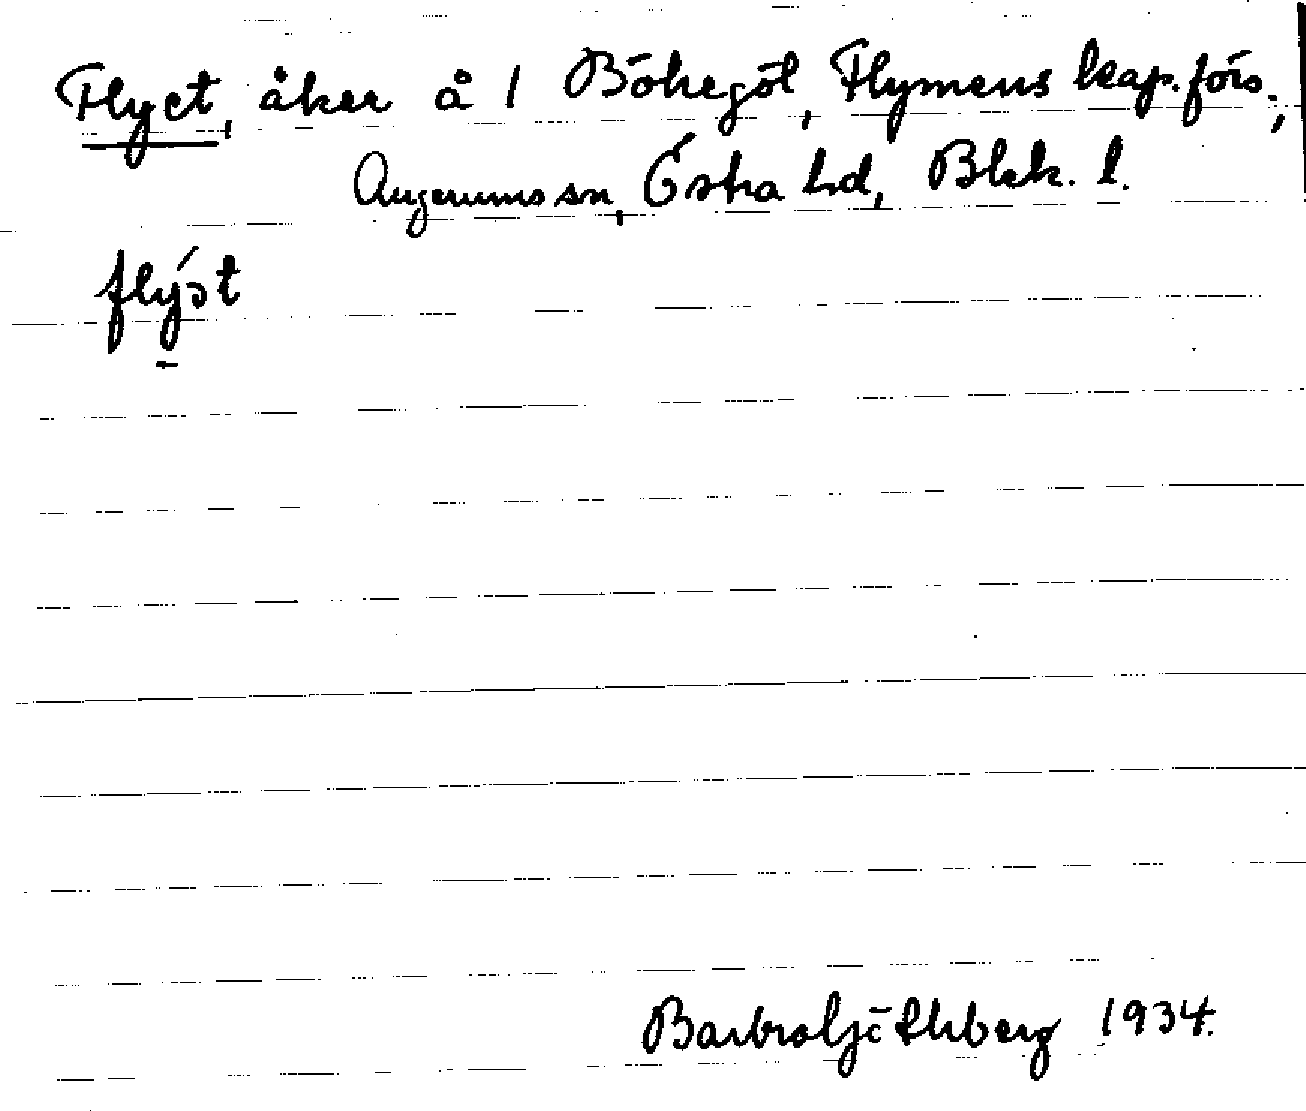 Flyet, åker å 1 Bökegöl, Flymens kap.förs.;
Augerums sn, Östra hd, Blek. l.
flýət
Barbro Ljöthberg 1934.